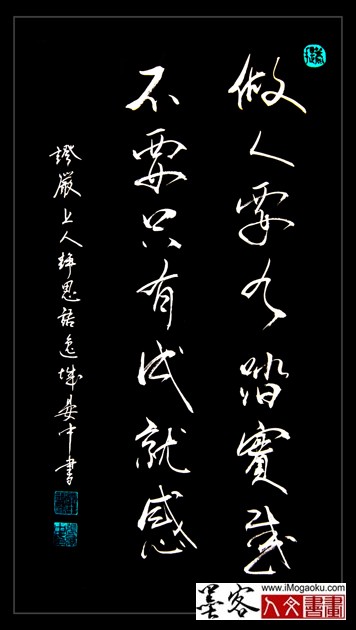 做人要有踏實感
不要只有成就感
證嚴上人靜思語 城 中書
www.iMogaoku.com
墨客 人文書畫